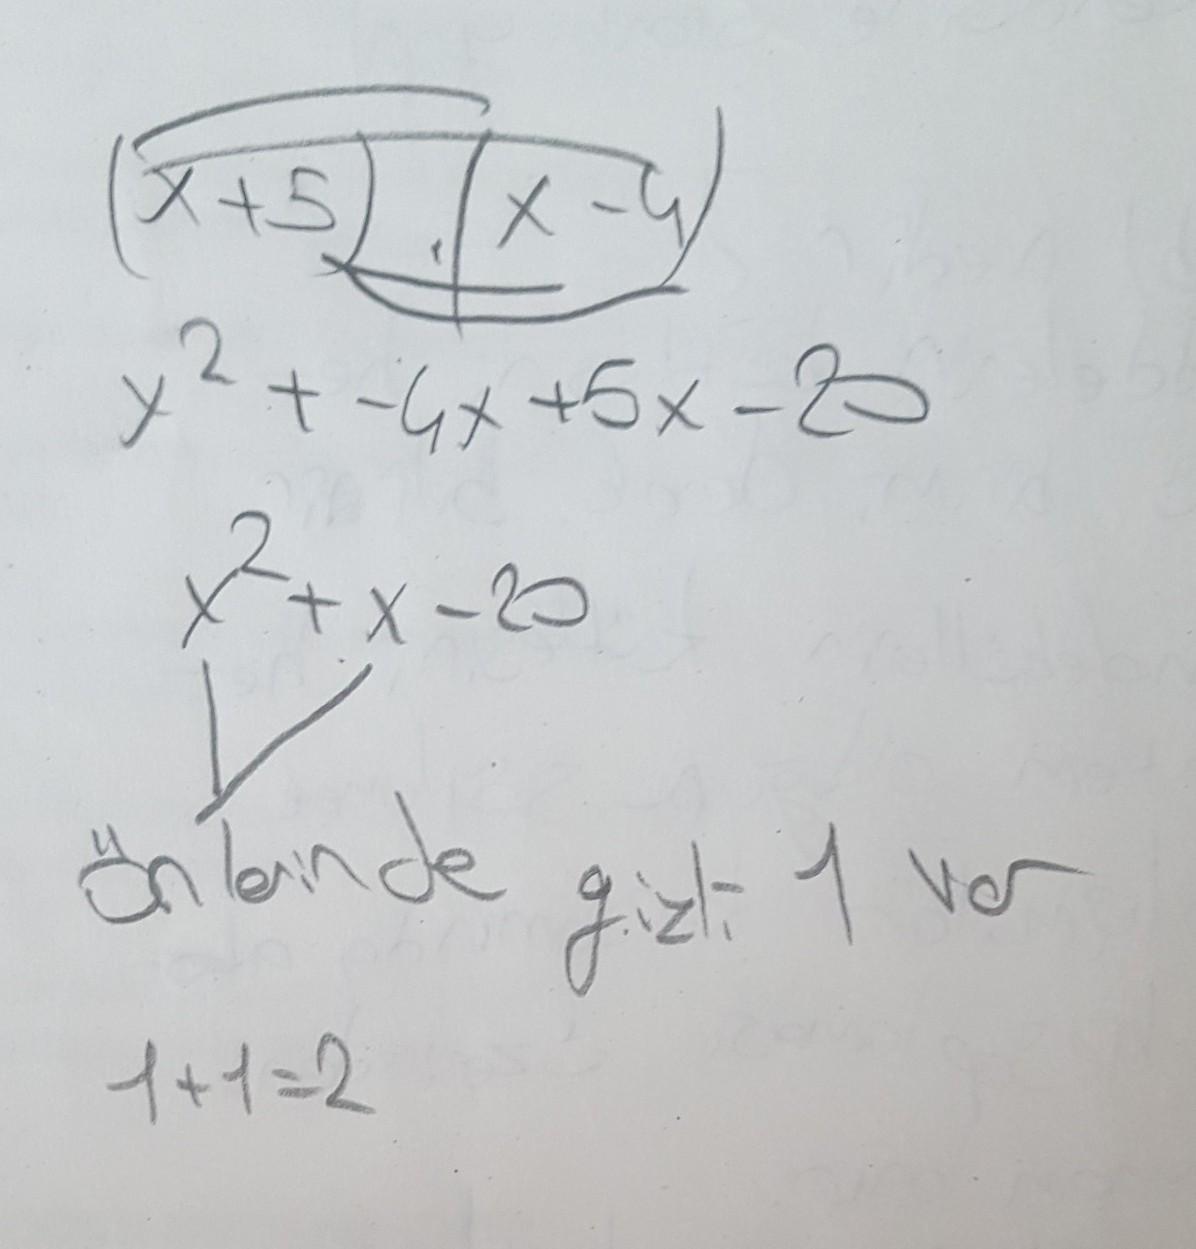 (x+5).(x-4)
x² + -4x +5x -20
x² + x - 20
Önlerinde gizli 1 var
1+1=2